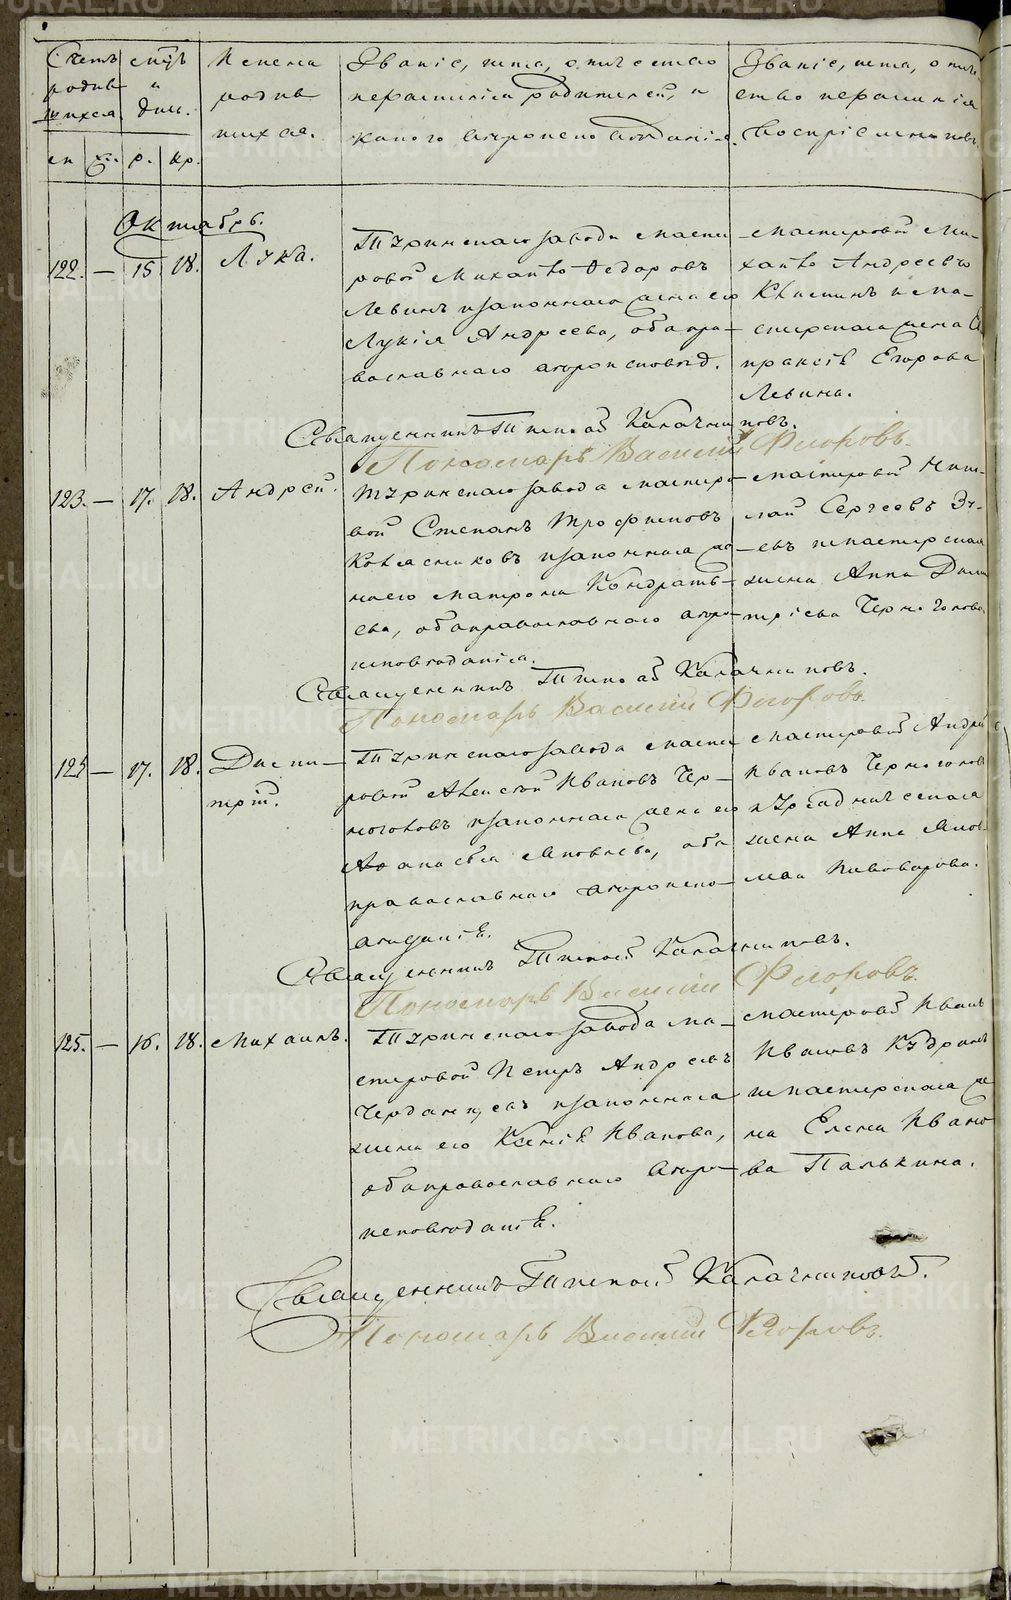 Счетъ родив шихся.
мц̃ъ и дни.
Имена родив шихся.
Званіе, имя, отчество и фамилія родителей, и какого вѣроисповѣданія.
Званіе, имя, отче ство и фамилія воспріемниковъ
м п
ж п.
р.
кр.
Октябрь.
122. — 15 18. Лука.
Туринскаго завода масте
ровой Михайло Федоровъ
Левинъ и законная жена его
Лукія Андреева, оба пра-
вославнаго вѣроисповѣд.
мастировой Ми-
хайло Андреевъ
и ма-
стерская жена
праксія Егорова
Левина.
Священникъ Тимоѳей Калачниковъ.
Пономарь Василій Флоровъ.
123. — 17. 18. Андрей.
Туринскаго завода мастиро-
вой Степанъ Трофимовъ
Колясниковъ и законная же
на его Матрона Кондрать-
ева, оба православнаго вѣро-
исповѣданія.
мастировой Нико-
лай Сергеевъ Зу-
евъ и мастерская
жена Анна Дми
тріева Черноголова.
Священникъ Тимоѳей Калачниковъ.
Пономарь Василій Флоровъ.
124 — 17. 18. Дми-
трій.
Туринскаго завода масте
ровой Алексѣй Ивановъ Чер-
ноголовъ и законная жена его
Аѳанасья Яковлева, оба
православнаго вѣроиспо-
вѣданія.
мастировой Андрей
Ивановъ Черноголов
и Урядническая
жена Анна Яков-
лева Пивоварова.
Священникъ Тимоѳей Калачниковъ.
Пономарь Василій Флоровъ.
125. — 16. 18. Михаилъ.
Туринскаго завода ма-
стеровой Петръ Андреевъ
Черданцевъ и законная
жена его Ксенія Иванова,
оба православнаго вѣро-
исповѣданія.
мастировой Иванъ
Ивановъ Кудринъ
и мастерская же
на Елена Ивано
ва Палькина.
Священникъ Тимоѳей Калачниковъ.
Пономарь Василій Флоровъ.
METRIKI.GASO-URAL.RU